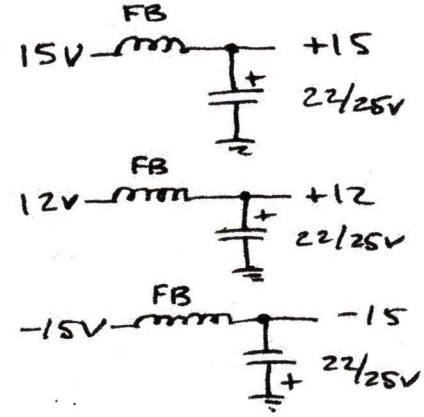 FB
15V +15
+
22/25V
FB
12V +12
+
22/25V
FB
-15V -15
22/25V
+